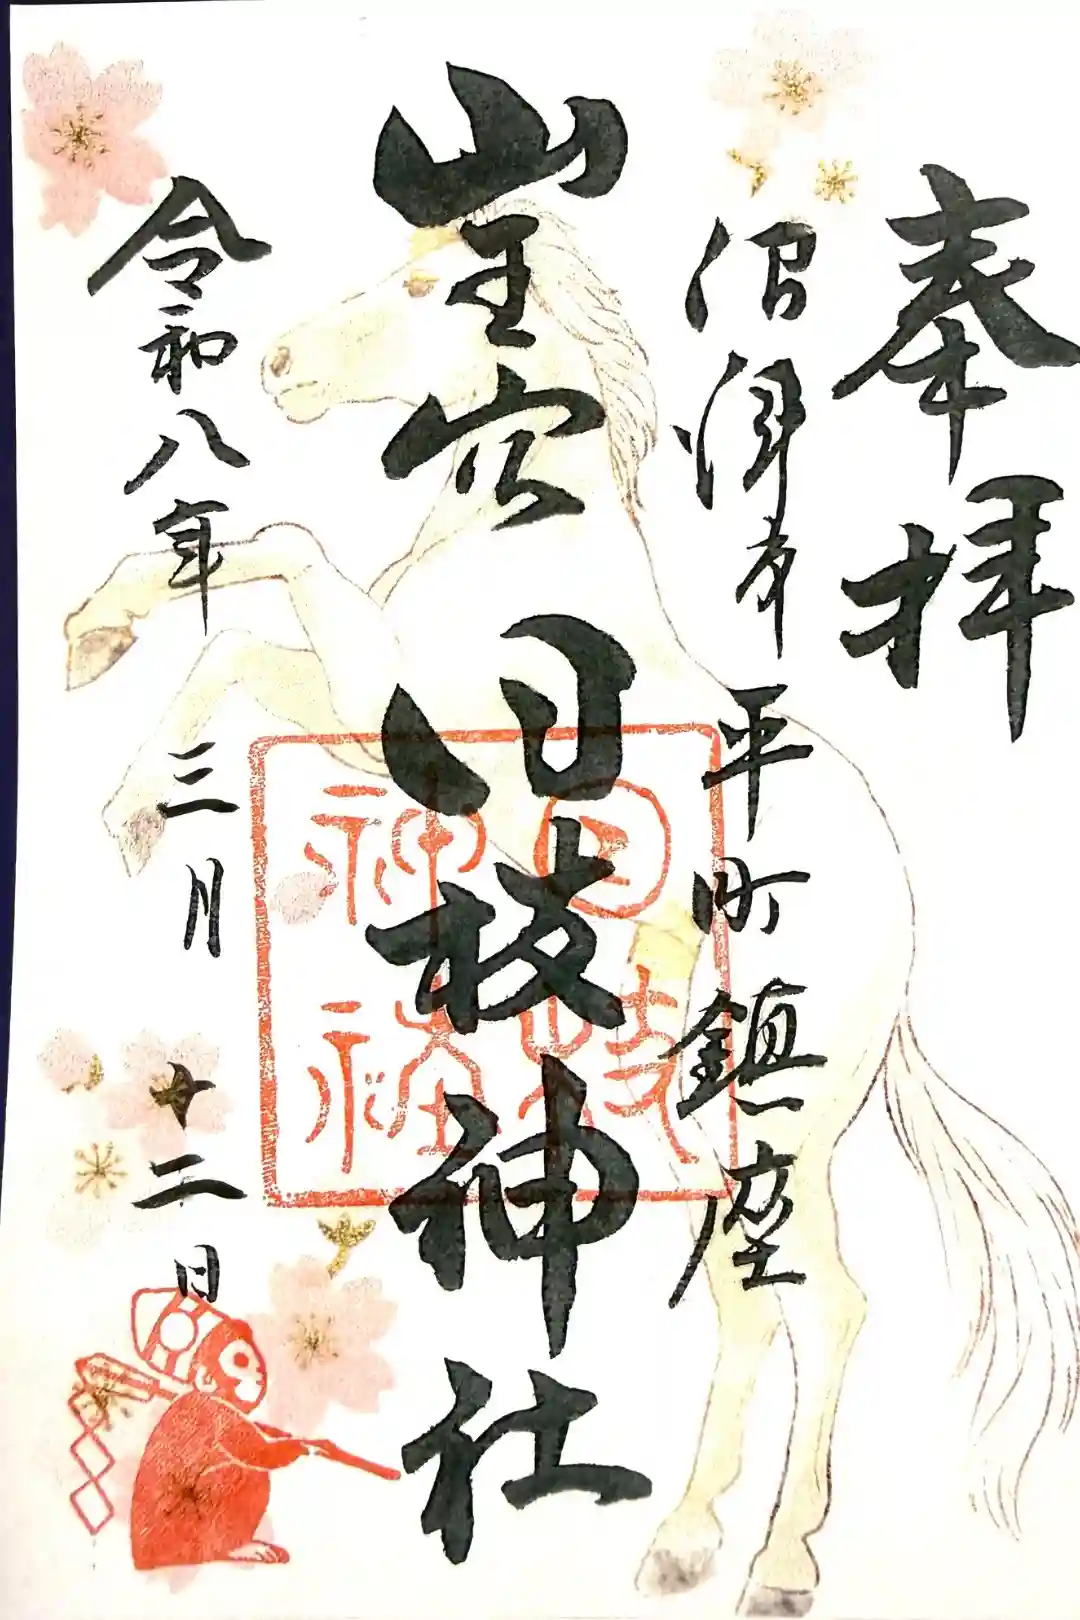 奉拝
沼津市平町鎮座
山王宮
日枝神社
令和八年三月十二日
日枝神社